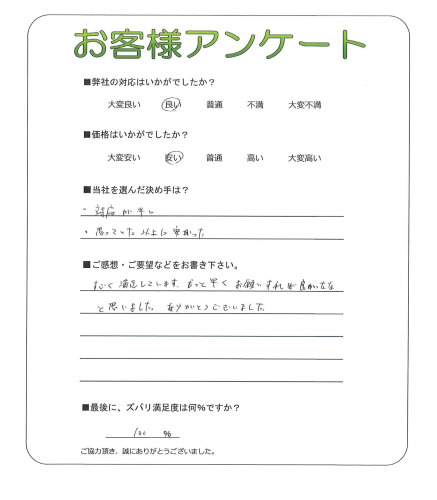 お客様アンケート
■弊社の対応はいかがでしたか？
大変良い 良い 普通 不満 大変不満
■価格はいかがでしたか？
大変安い 安い 普通 高い 大変高い
■当社を選んだ決め手は？
・対応が早い
・思っていた以上に安かった
■ご感想・ご要望などをお書き下さい。
すごく満足しています。もっと早くお願いすれば良かったな
と思いました。ありがとうございました
■最後に、ズバリ満足度は何%ですか？
100 %
ご協力頂き、誠にありがとうございました。